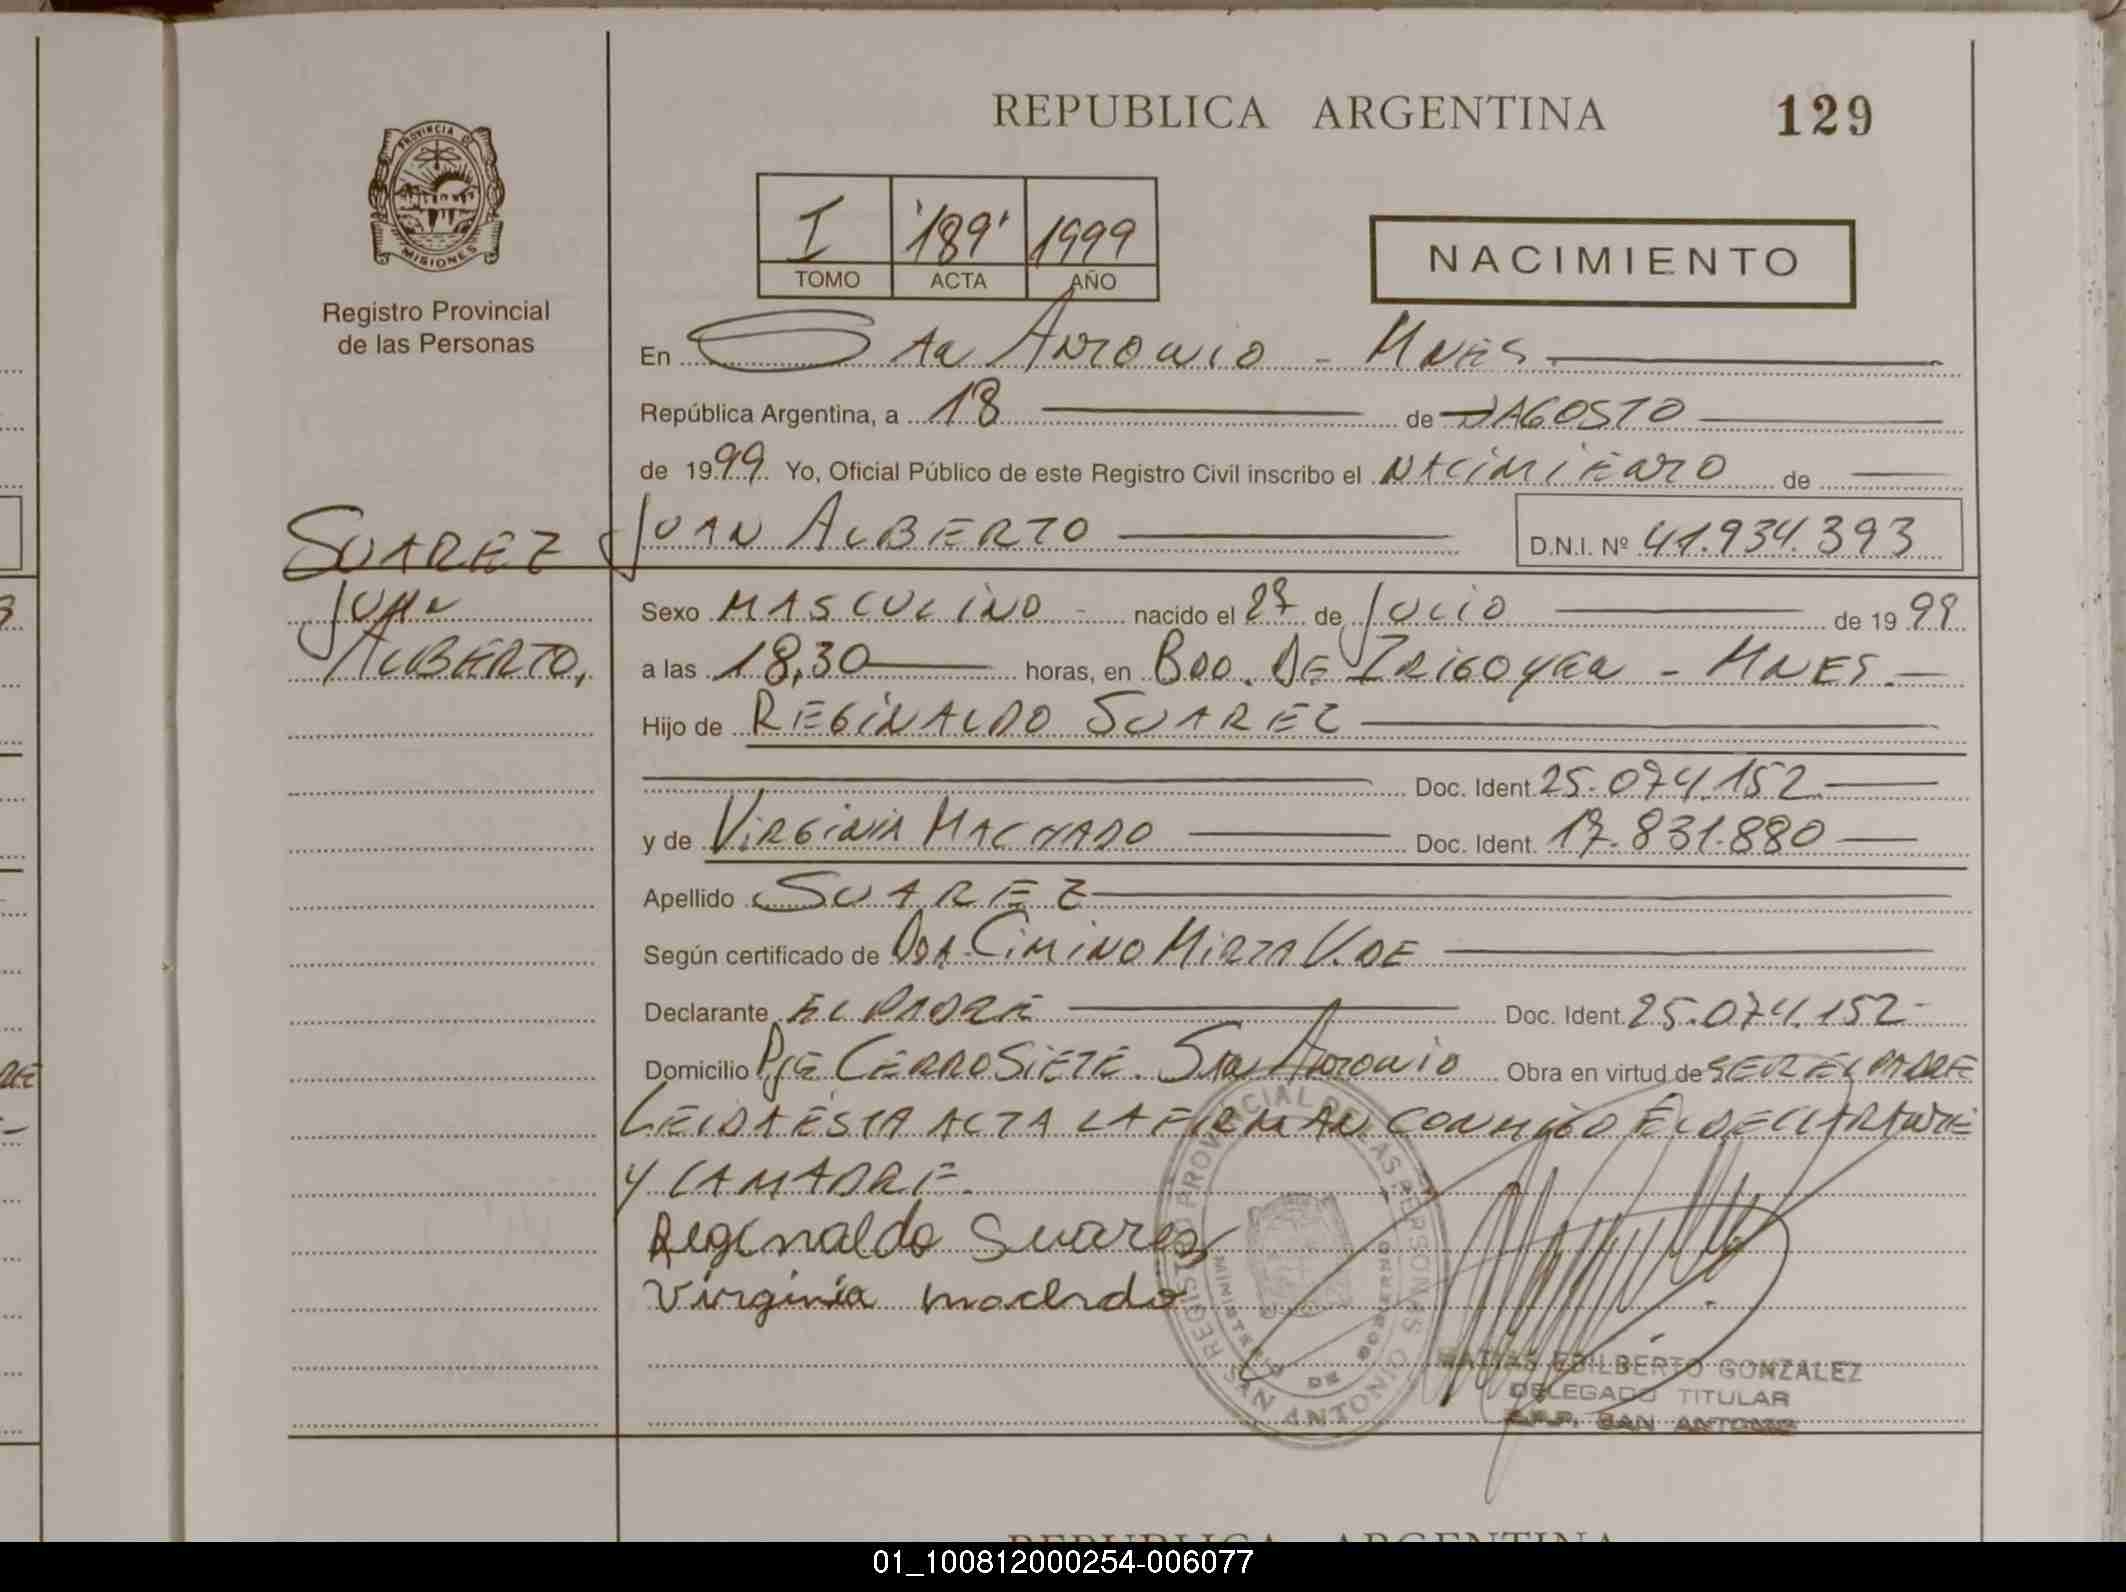 REPUBLICA ARGENTINA
129
PROVINCIA DE
MISIONES
Registro Provincial
de las Personas
I '189' 1999
TOMO ACTA AÑO
NACIMIENTO
En San Antonio - Mnes.
República Argentina, a 18 de AGOSTO
de 1999 Yo, Oficial Público de este Registro Civil inscribo el NACIMIENTO de
JUAN ALBERTO D.N.I. Nº 41.934.393
SUAREZ
JUAN
ALBERTO,
Sexo MASCULINO - nacido el 27 de JULIO de 1999
a las 18,30 horas, en BDO. DE IRIGOYEN - MNES.
Hijo de REGINALDO SUAREZ
Doc. Ident. 25.074.152
y de VIRGINIA MACHADO Doc. Ident. 17.831.880
Apellido SUAREZ
Según certificado de DRA. CIMINO MIRTA V. DE
Declarante EL PADRE Doc. Ident. 25.074.152-
Domicilio PJE CERRO SIETE. SAN ANTONIO Obra en virtud de SER EL PADRE
LEIDA ESTA ACTA LA FIRMAN CONMIGO EL DECLARANTE
Y LA MADRE.
Reginaldo Suarez
Virginia machado
REGISTRO PROVINCIAL DE LAS PERSONAS
MINISTERIO DE GOBIERNO
SAN ANTONIO
EDILBERTO GONZALEZ
DELEGADO TITULAR
SAN ANTONIO
REPUBLICA ARGENTINA
01_100812000254-006077